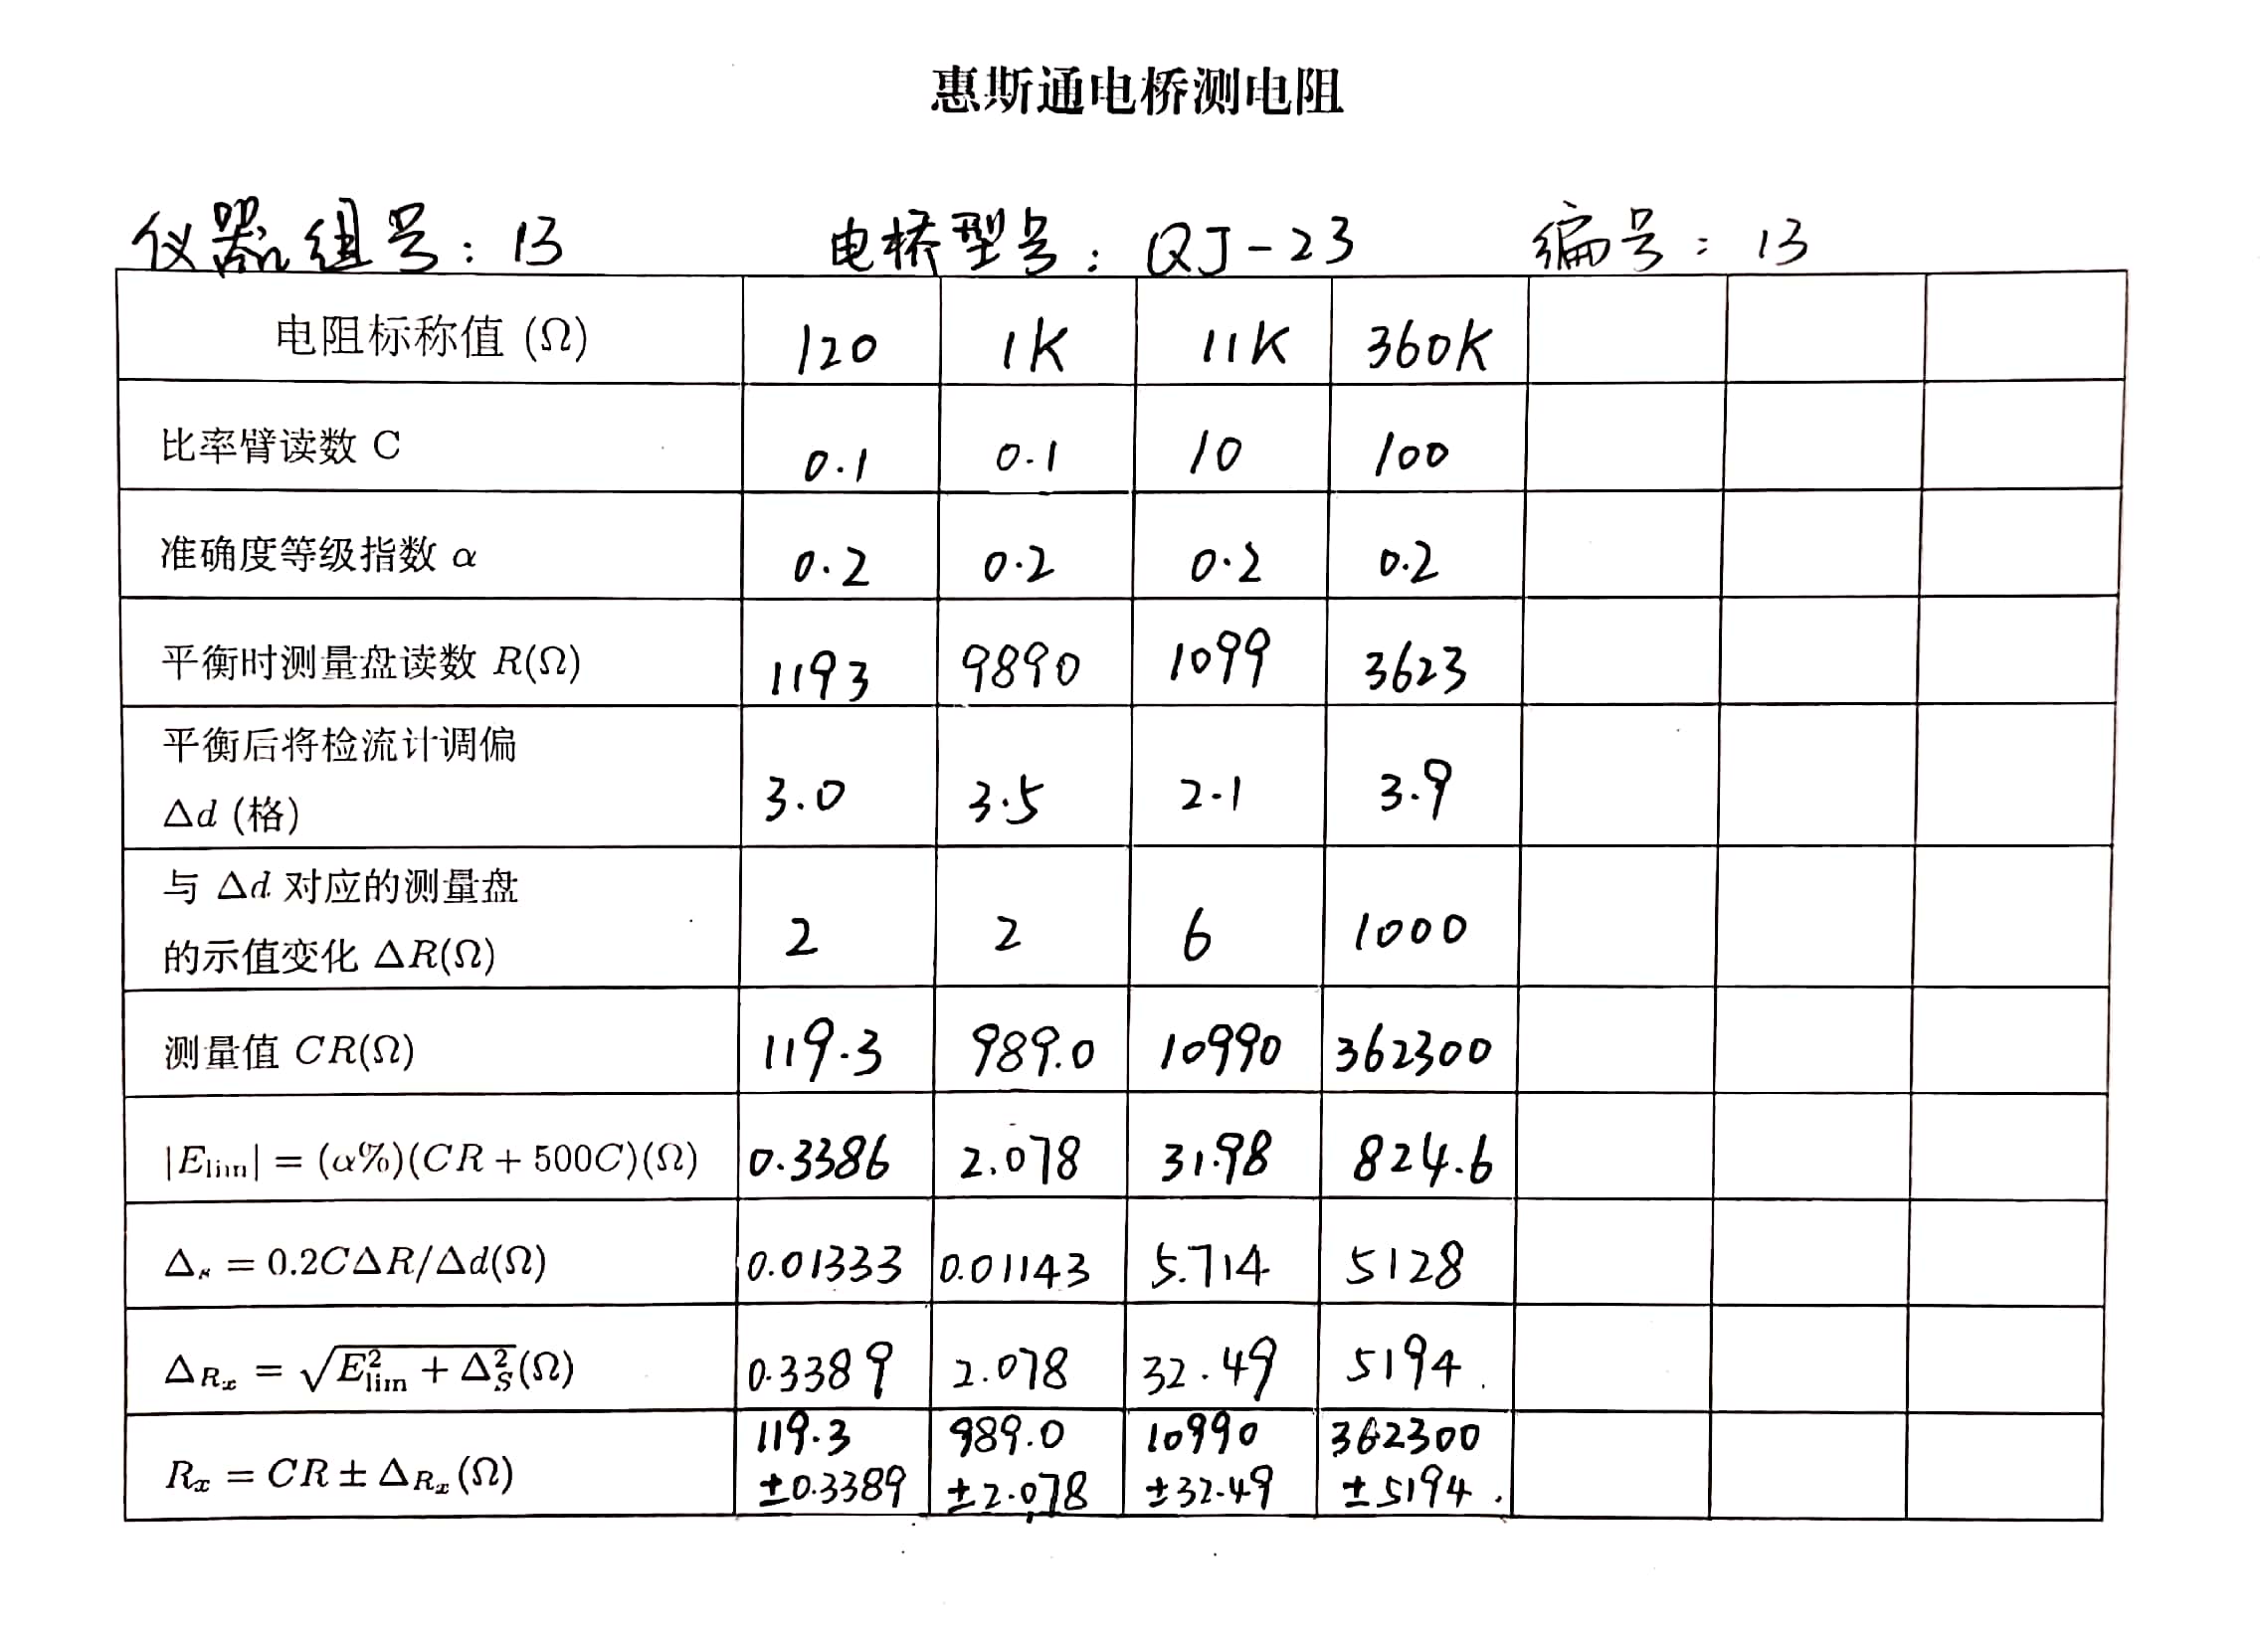 惠斯通电桥测电阻
仪器组号：13 电桥型号：QJ-23 编号：13
电阻标称值 (Ω) 120 1K 11K 360K
比率臂读数 C 0.1 0.1 10 100
准确度等级指数 α 0.2 0.2 0.2 0.2
平衡时测量盘读数 R(Ω) 1193 9890 1099 3623
平衡后将检流计调偏
Δd (格) 3.0 3.5 2.1 3.9
与 Δd 对应的测量盘
的示值变化 ΔR(Ω) 2 2 6 1000
测量值 CR(Ω) 119.3 989.0 10990 362300
|E_lim| = (α%)(CR + 500C)(Ω) 0.3386 2.078 31.98 824.6
Δ_s = 0.2CΔR/Δd(Ω) 0.01333 0.01143 5.714 5128
Δ_{R_x} = √(E²_lim + Δ²_S)(Ω) 0.3389 2.078 32.49 5194.
R_x = CR ± Δ_{R_x}(Ω) 119.3 ±0.3389 989.0 ±2.078 10990 ±32.49 362300 ±5194.